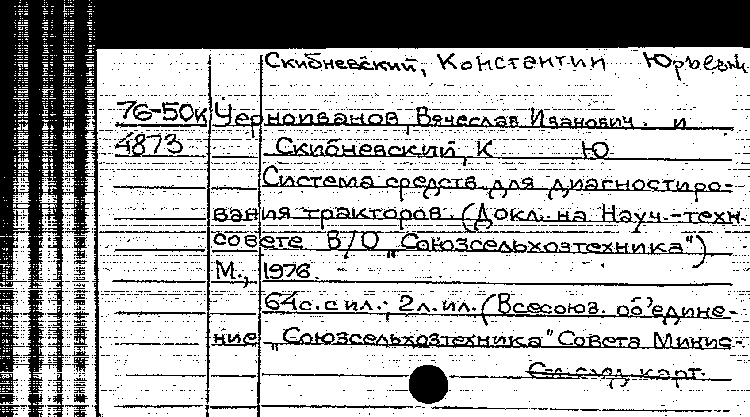 Скибневский, Константин Юрьевич
76-50к Черноиванов, Вячеслав Иванович. и
4873 Скибневский, К Ю
Система средств для диагностиро-
вания тракторов. (Докл. на Науч.-техн.
совете В/О „Союзсельхозтехника")
М., 1976.
64с. с ил.; 2л. ил. (Всесоюз. об'едине-
ние „Союзсельхозтехника" Совета Минис-
См. след. карт.